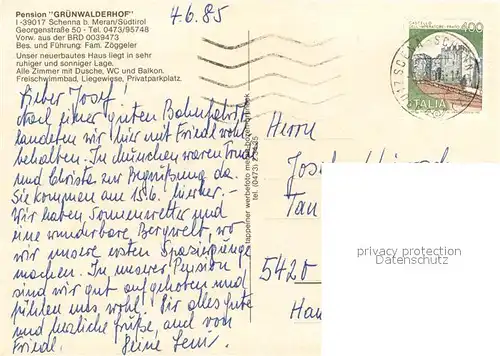 Pension "GRÜNWALDERHOF"
I-39017 Schenna b. Meran/Südtirol
Georgenstraße 50 - Tel. 0473/95748
Vorw. aus der BRD 0039473
Bes. und Führung: Fam. Zöggeler
Unser neuerbautes Haus liegt in sehr
ruhiger und sonniger Lage.
Alle Zimmer mit Dusche, WC und Balkon.
Freischwimmbad, Liegewiese, Privatparkplatz.
4.6.85
Lieber Josef!
Nach einer guten Bahnfahrt
landeten wir hier mit Friedl wohl
behalten. In München waren
und Christa zur Begrüßung da.
Sie kommen am 15.6. hierher.-
Wir haben Sonnenwetter und
eine wunderbare Bergwelt, wo
wir unsere ersten Spaziergänge
machen. In unserer Pension
sind wir gut aufgehoben und
fühlen uns wohl. Dir alles gute
und herzliche Grüße, auch von
Friedl. Deine
tappeiner werbefoto
tel. (0473)
400
ITALIA
Herrn
Josef
Tan
5420
Hau
privacy protection
Datenschutz